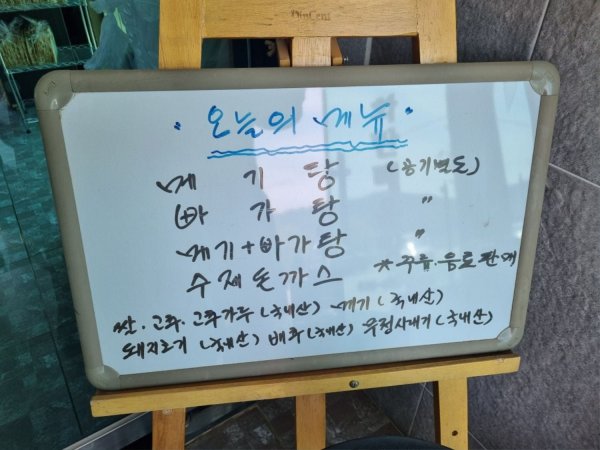 오늘의 메뉴
메 기 탕 (공기별도)
빠 가 탕 "
메기+빠가탕 "
수제돈까스 *주류.음료판매
쌀.고추.고추가루(국내산) 메기(국내산)
돼지고기(국내산) 배추(국내산) 무청시래기(국내산)